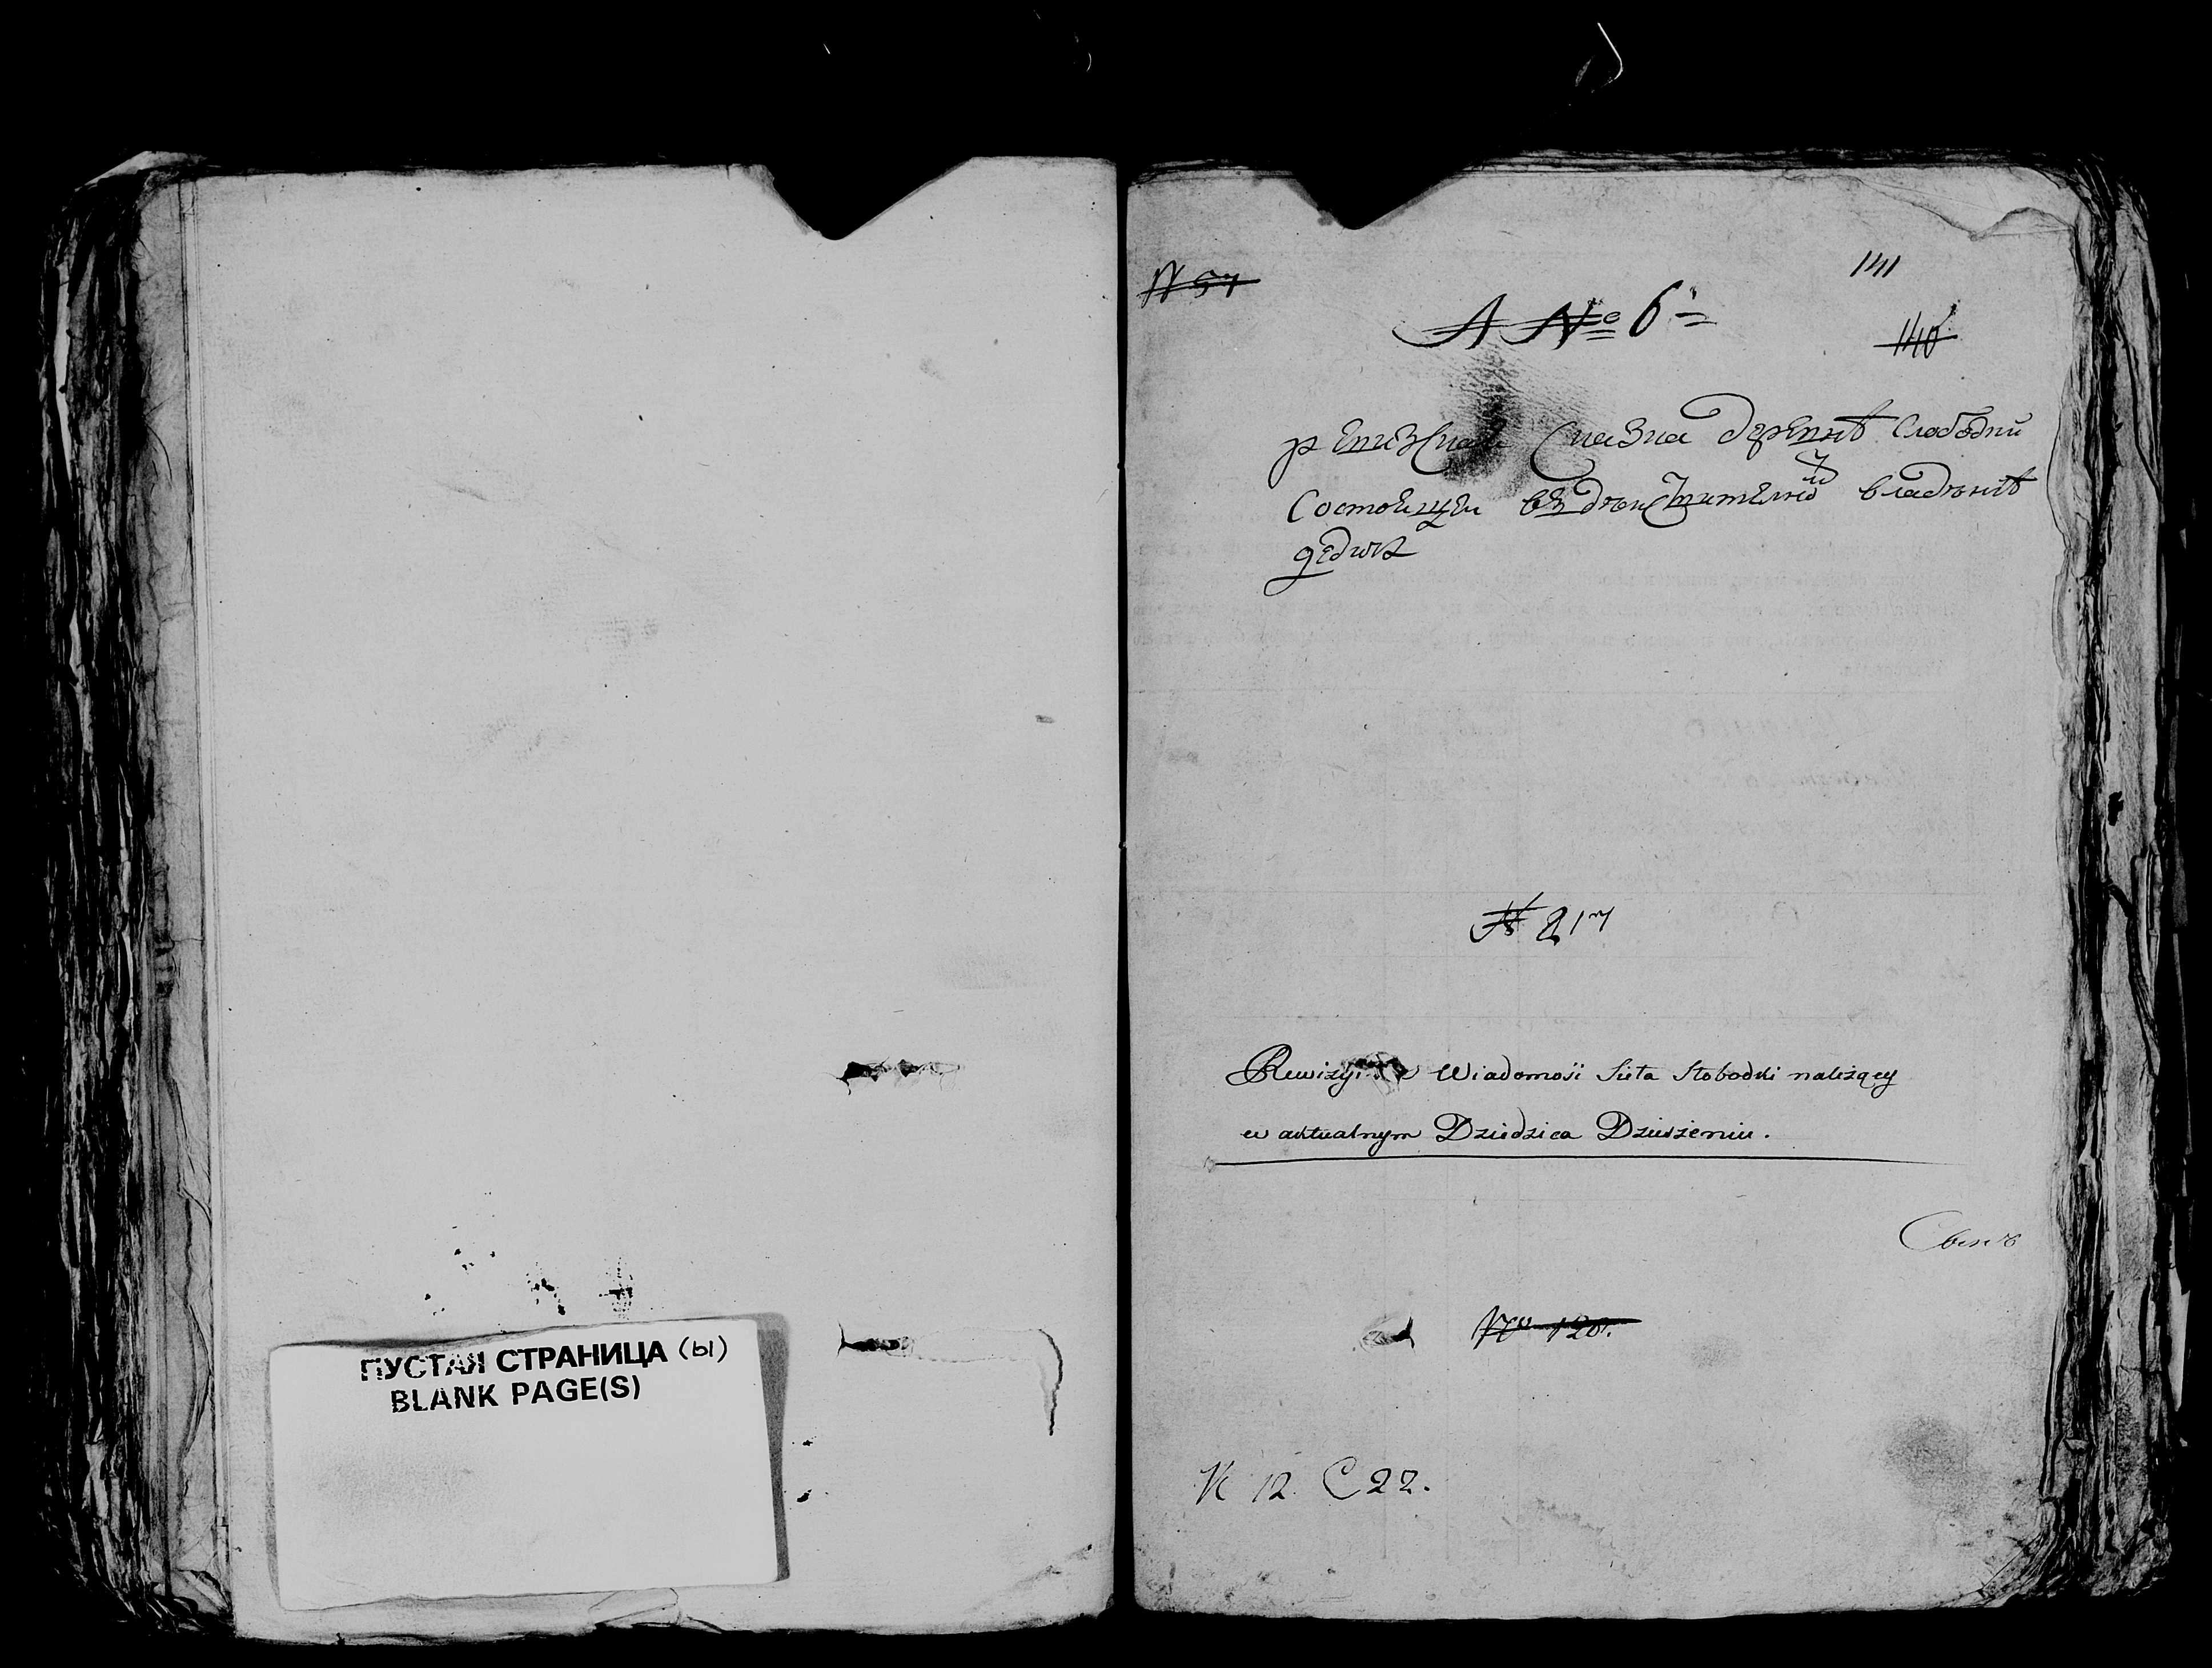 ПУСТАЯ СТРАНИЦА (Ы)
BLANK PAGE(S)
N 57
141
A No 6
140
ревизская Сказка деревнѣ Слободки
Состоящеи въ действительной владѣнiѣ
дедича
N 217
Rewizyi Wiadomosi Sieła Słobodki nalężącey
w aktualnym Dziedzica Dzierżeniu.
No 120.
K 12. C 22.